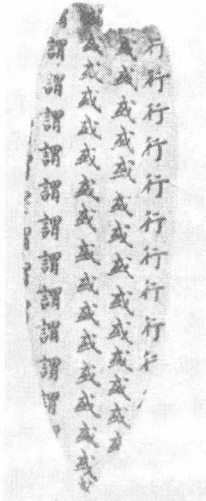 行行行行行行行行行
或或或或或或或或或或或或或
或或或或或或或或或或或或或或或
謂謂謂謂謂謂謂謂謂謂謂